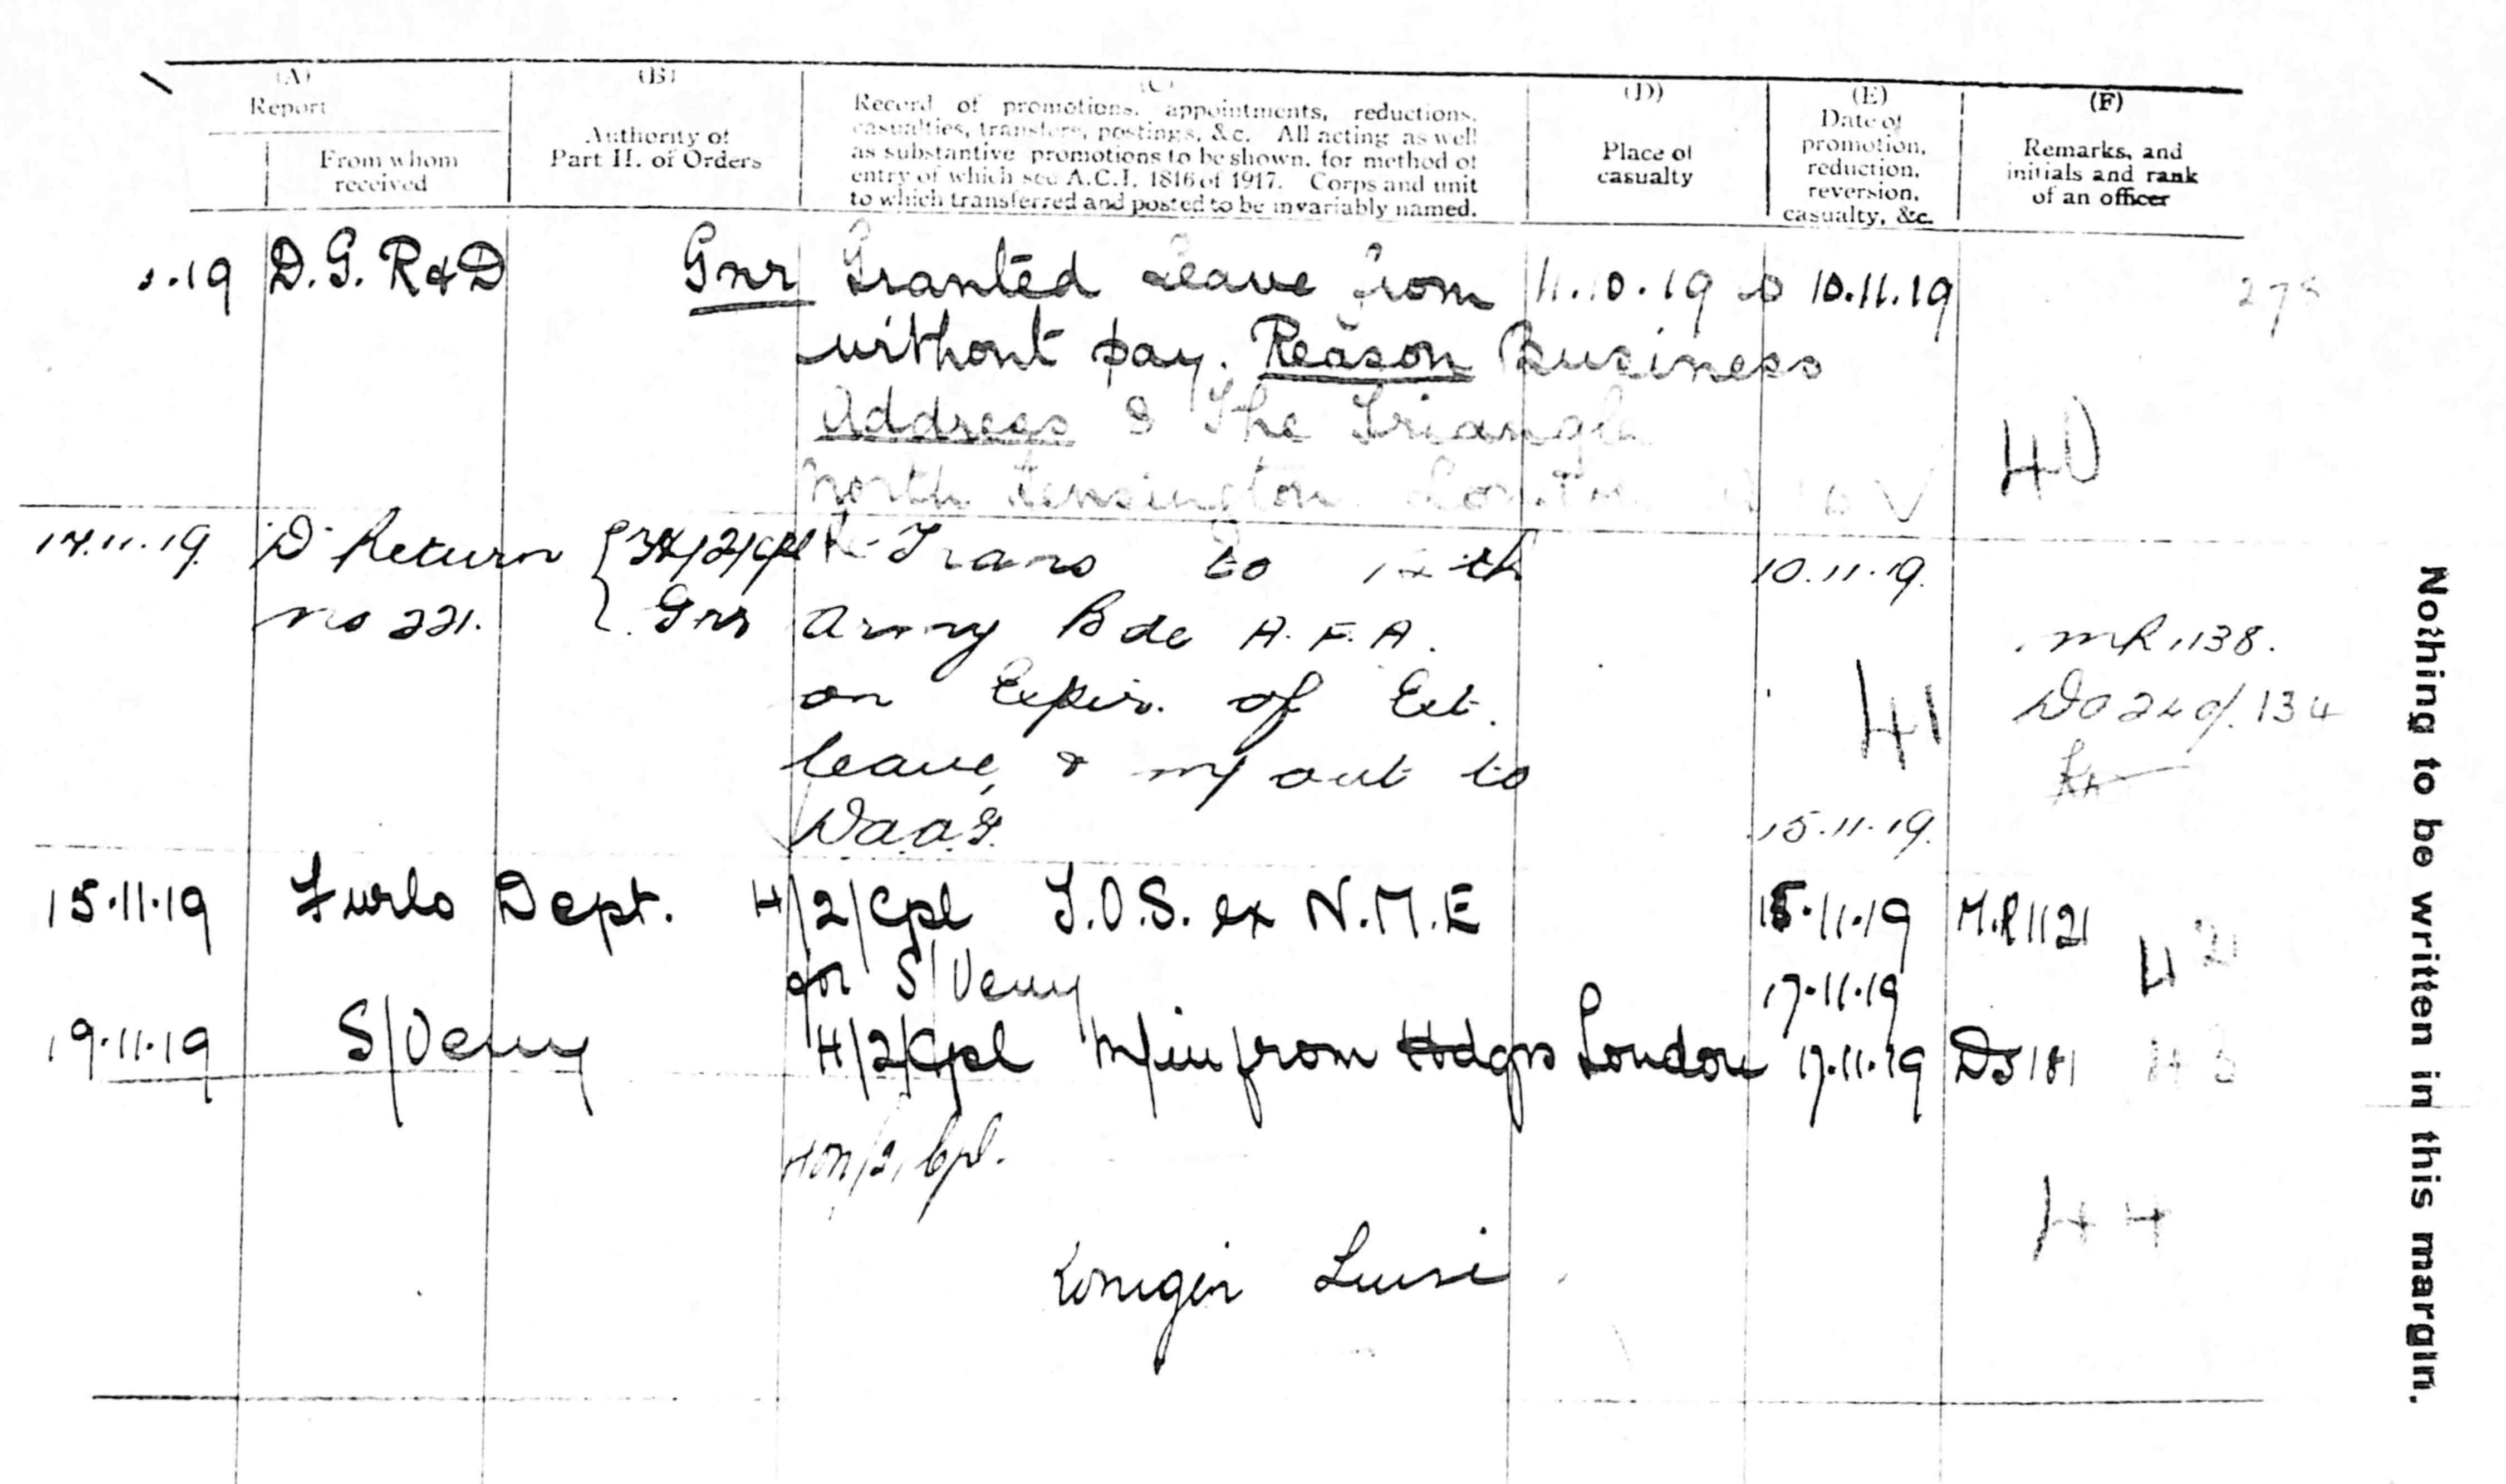 (A)
Report
From whom
received
(B)
Authority of
Part II. of Orders
(C)
Record of promotions, appointments, reductions,
casualties, transfers, postings, &c. All acting as well
as substantive promotions to be shown, for method of
entry of which see A.C.I. 1816 of 1917. Corps and unit
to which transferred and posted to be invariably named.
(D)
Place of
casualty
(E)
Date of
promotion,
reduction,
reversion,
casualty, &c.
(F)
Remarks, and
initials and rank
of an officer
.19 D.G. R&D Gnr Granted Leave from 11.10.19 to 10.11.19
without pay. Reason Business
Address 8 The Triangle
North Kensington London W
40
14.11.19 D Return Trans to 12th 10.11.19.
No 221. Gnr Army Bde A.F.A.
mR 1138.
on Expir. of Ext. 41
leave & m/out to
15.11.19.
15.11.19 Furlo Dept. H/2/Cpl T.O.S. ex N.M.E 15.11.19 M.R 1121 42
for S/Veny 17.11.19
19.11.19 S/Veny H/2/Cpl M/in from Hdqrs London 17.11.19 43
Hon/2/Cpl.
44
Konigin Luise
Nothing to be written in this margin.